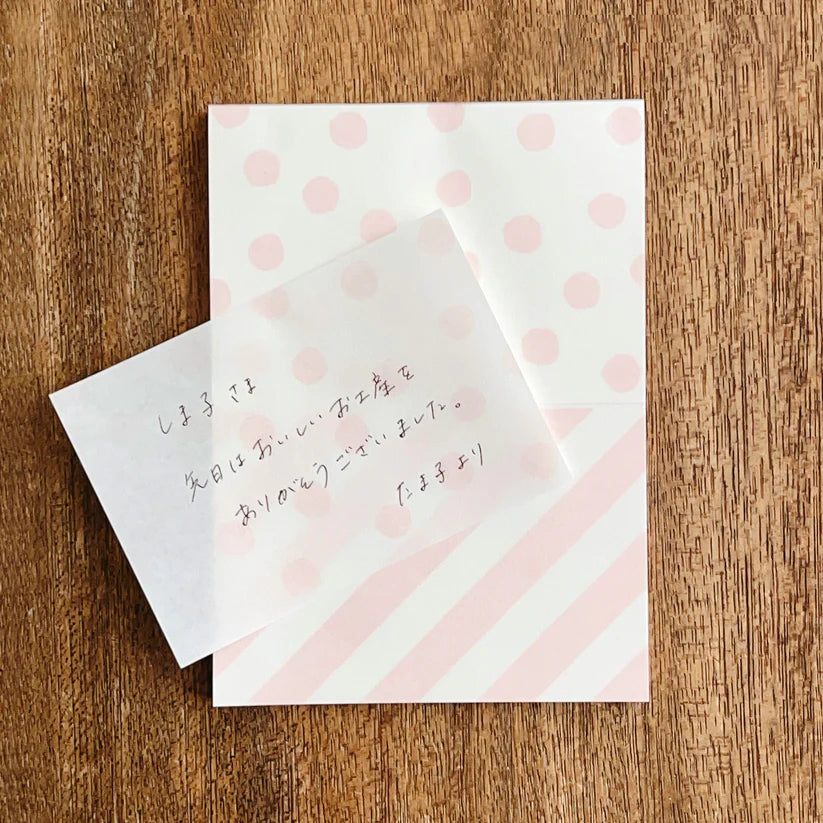 しま子さま
先日はおいしいお土産を
ありがとうございました。
たま子より